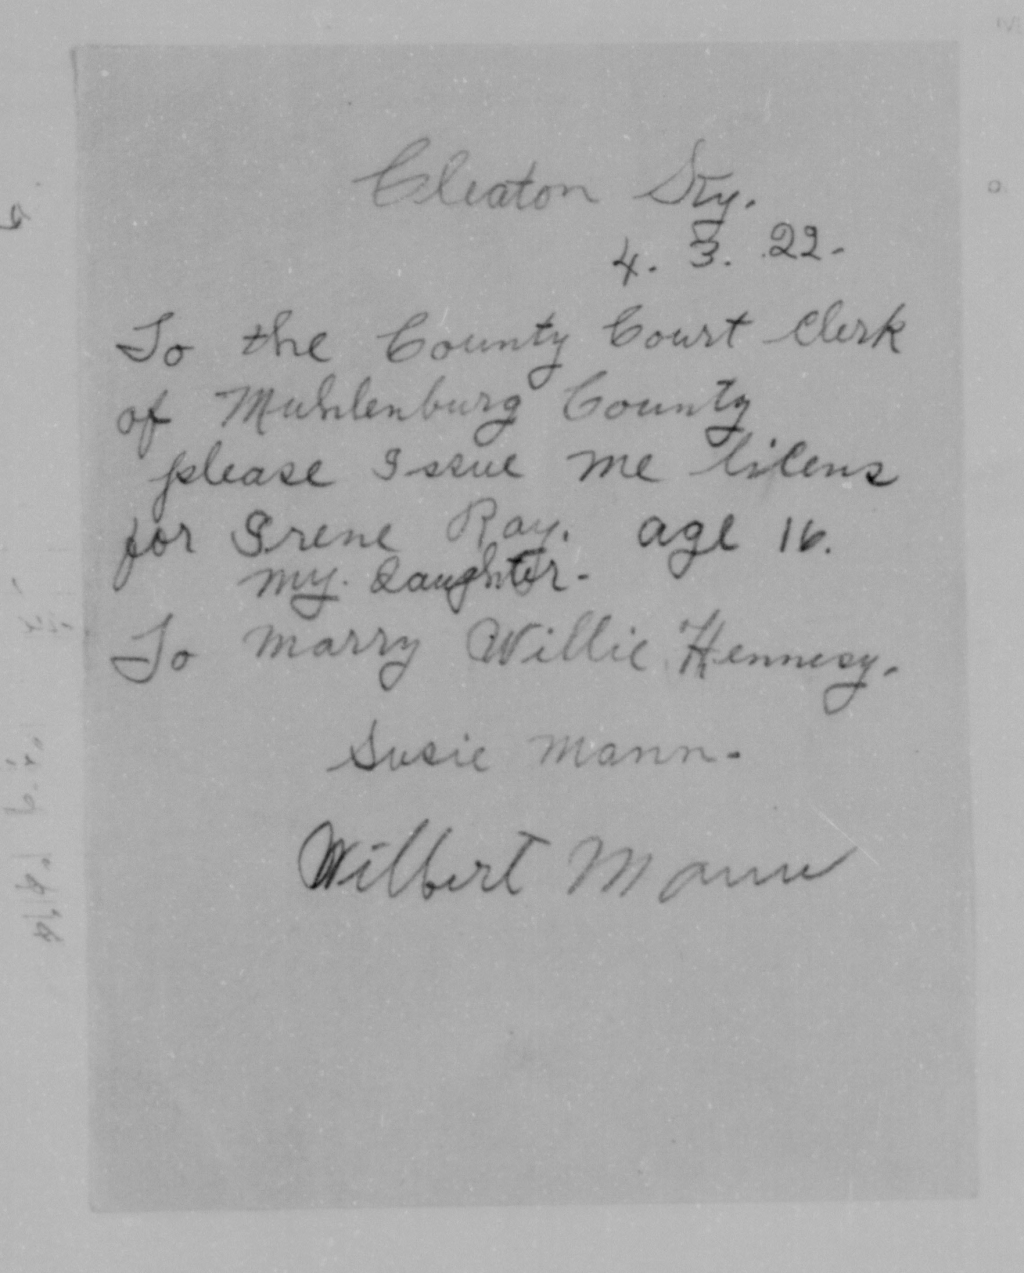 Cleaton Ky.
4. 3. 22.
To the County Court Clerk
of Muhlenburg County
please Issue me lilens
for Irene Ray. age 16.
my. daughter.
To marry Willie Hennesy.
Susie Mann.
Wilbert Mann